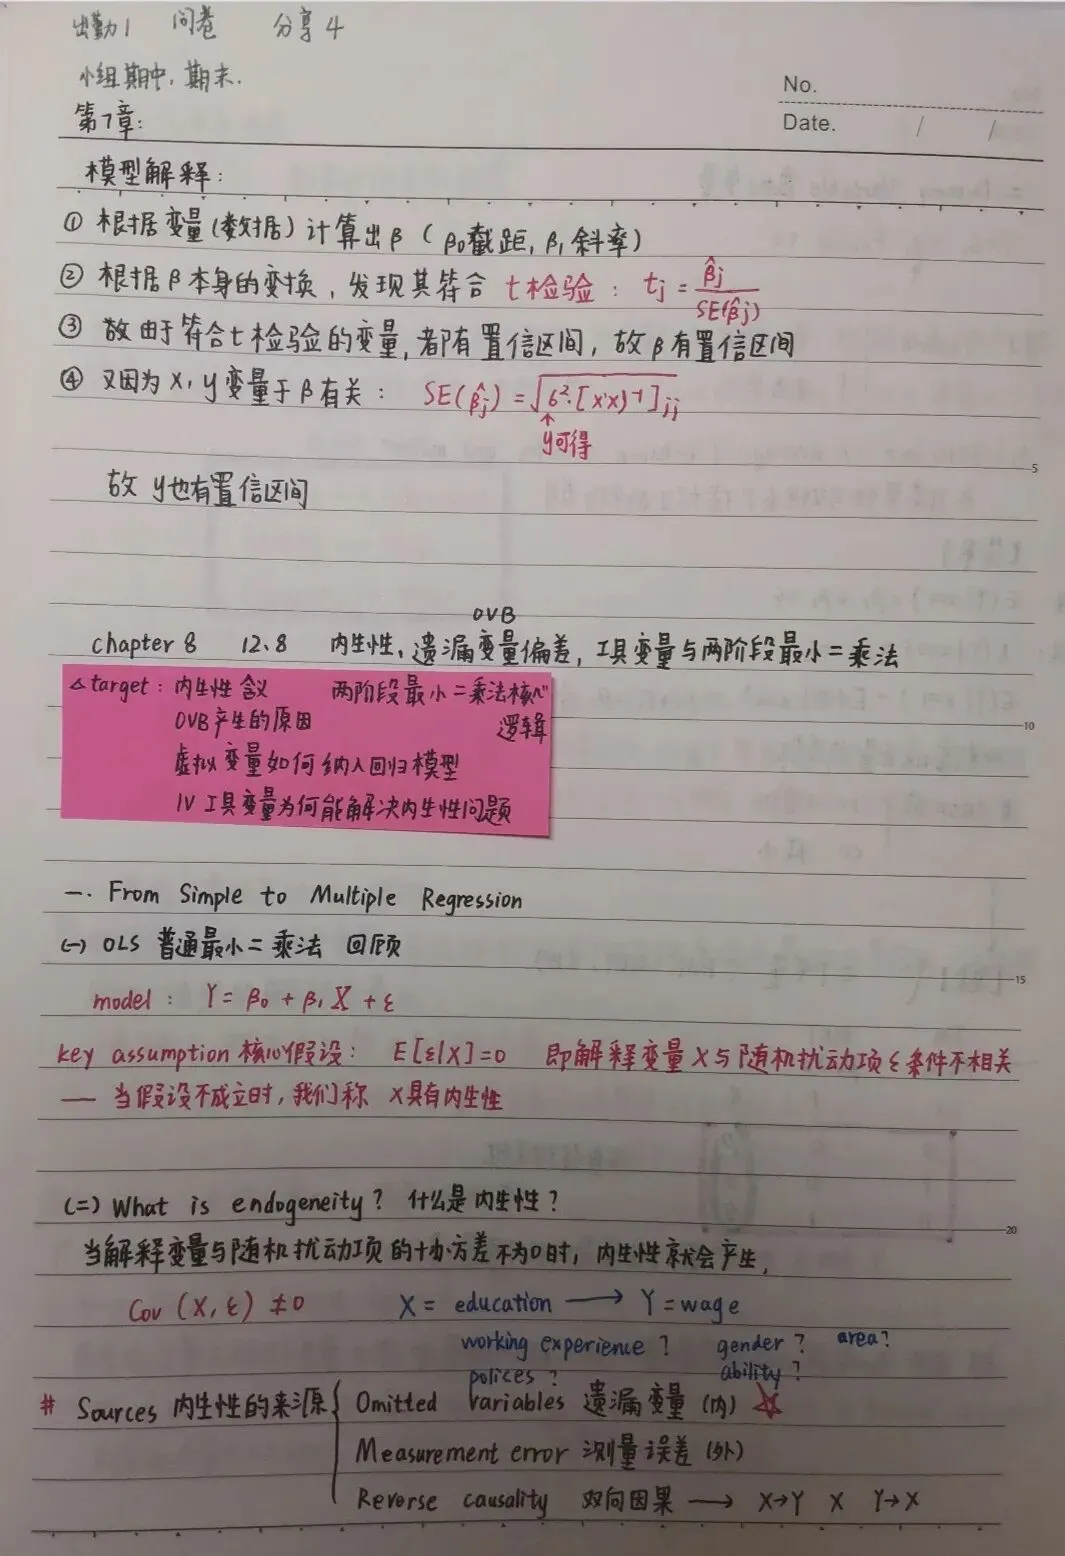 出勤1 问卷 分享4
小组期中,期末.
No.
Date. / /
第7章:
模型解释:
① 根据变量(数据)计算出β(β₀截距,β₁斜率)
② 根据β本身的变换,发现其符合 t检验: tⱼ = β̂j / SE(β̂j)
③ 故由于符合t检验的变量,都有置信区间,故β有置信区间
④ 又因为X,y变量于β有关: SE(β̂j) = √6²·[X'X)⁻¹]jj
↑
y可得
5
故 y也有置信区间
OVB
chapter 8 12.8 内生性,遗漏变量偏差,工具变量与两阶段最小二乘法
△target: 内生性含义 两阶段最小二乘法核心
OVB产生的原因 逻辑
10
虚拟变量如何纳入回归模型
IV工具变量为何能解决内生性问题
一. From Simple to Multiple Regression
(一) OLS 普通最小二乘法 回顾
15
model: Y = β₀ + β₁X + ε
key assumption 核心假设: E[ε|X]=0 即解释变量X与随机扰动项ε条件不相关
— 当假设不成立时,我们称 X具有内生性
(二) What is endogeneity? 什么是内生性?
20
当解释变量与随机扰动项的协方差不为0时,内生性就会产生,
Cov(X,ε)≠0 X = education → Y=wage
working experience? gender? area?
polices? ability?
# Sources 内生性的来源{ Omitted variables 遗漏变量(内) ☆
Measurement error 测量误差(外)
Reverse causality 双向因果 → X→Y X Y→X